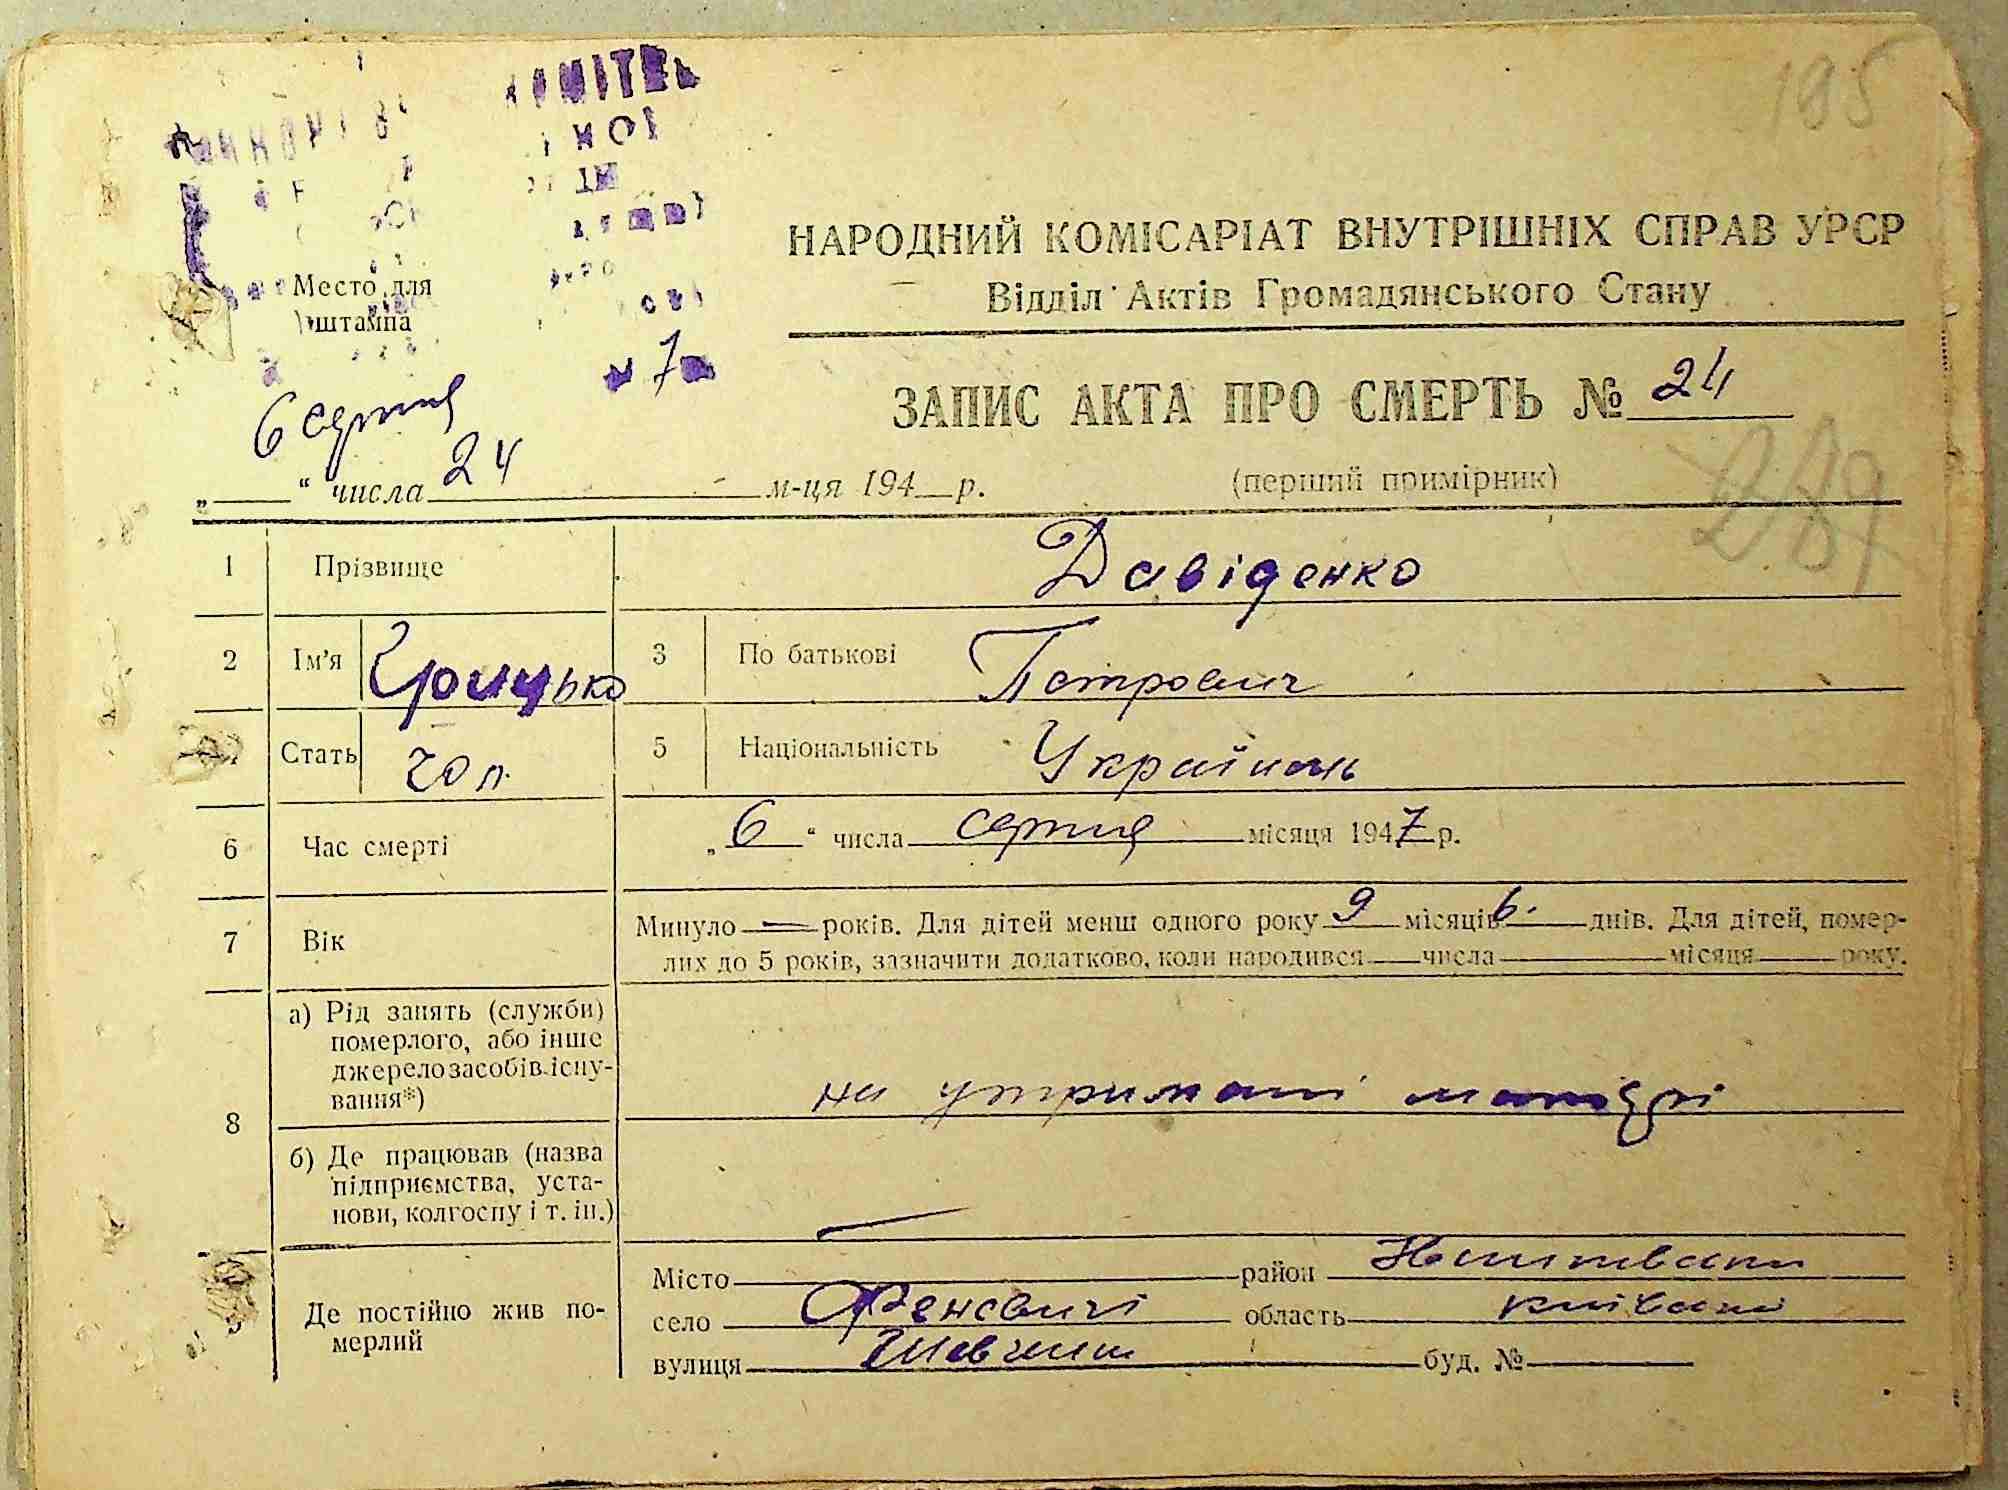 195
НАРОДНИЙ КОМІСАРІАТ ВНУТРІШНІХ СПРАВ УРСР
Відділ Актів Громадянського Стану
Место для
штампа
7
ЗАПИС АКТА ПРО СМЕРТЬ № 24
6 серпня
„ “ числа 24 м-ця 194 р. (перший примірник)
1 Прізвище Давіденко
2 Ім'я Грицько 3 По батькові Петрович
Стать чол. 5 Національність Українець
6 Час смерті „ 6 “ числа серпня місяця 1947 р.
7 Вік Минуло — років. Для дітей менш одного року 9 місяців 6. днів. Для дітей, помер-
лих до 5 років, зазначити додатково, коли народився числа місяця року.
8 а) Рід занять (служби)
померлого, або інше
джерело засобів існу-
вання*)
на утримані матері
б) Де працював (назва
підприємства, уста-
нови, колгоспу і т. ін.)
—
Де постійно жив по-
мерлий
Місто район
село Феневичі область
вулиця буд. №